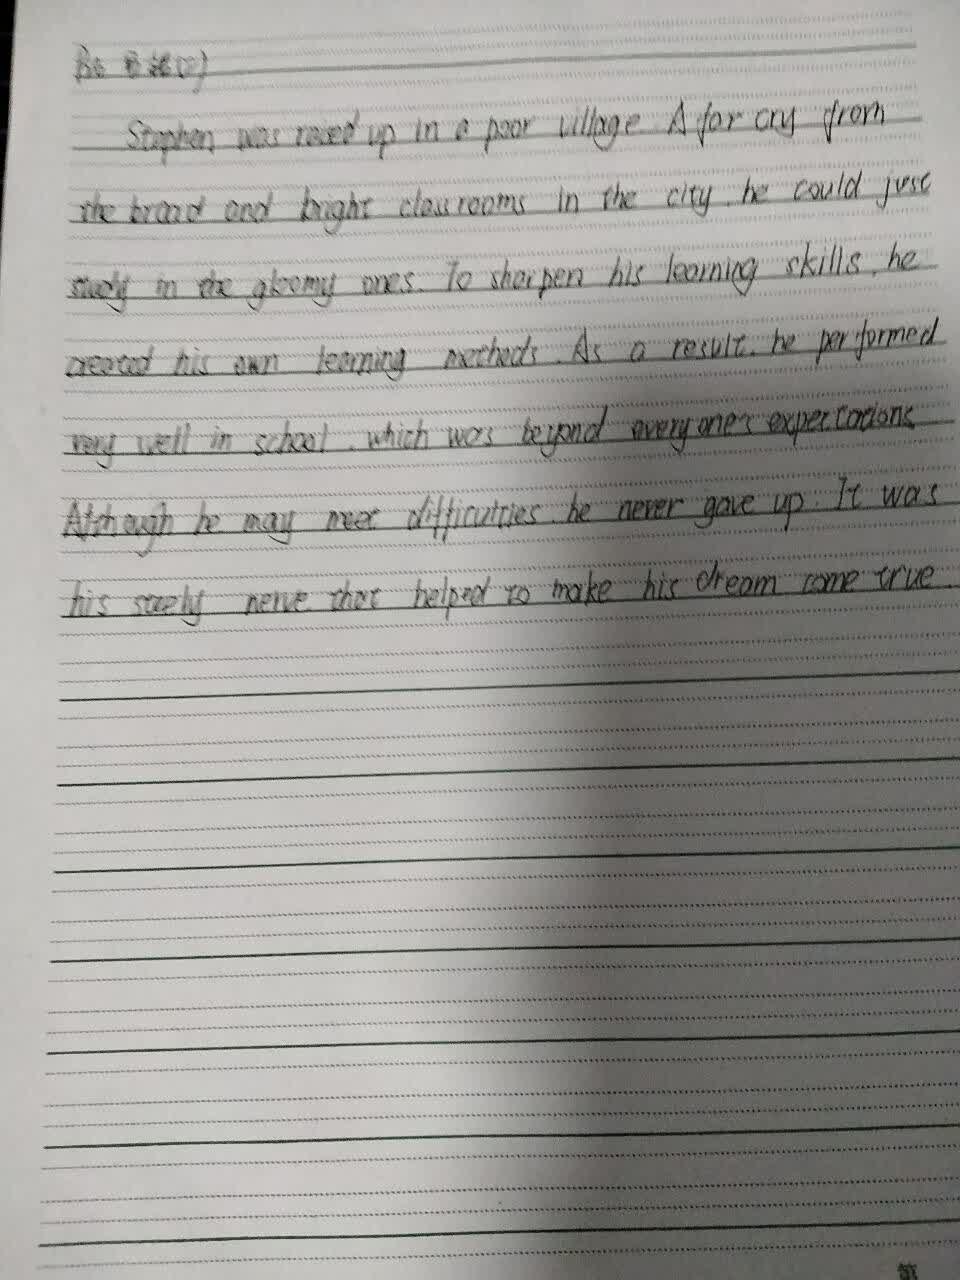 Stephen was raised up in a poor village. A far cry from
the broad and bright classrooms in the city, he could just
study in the gloomy ones. To sharpen his learning skills, he
created his own learning methods. As a result, he performed
very well in school, which was beyond everyone's expectations.
Although he may meet difficulties, he never gave up. It was
his nerve that helped to make his dream come true.
第